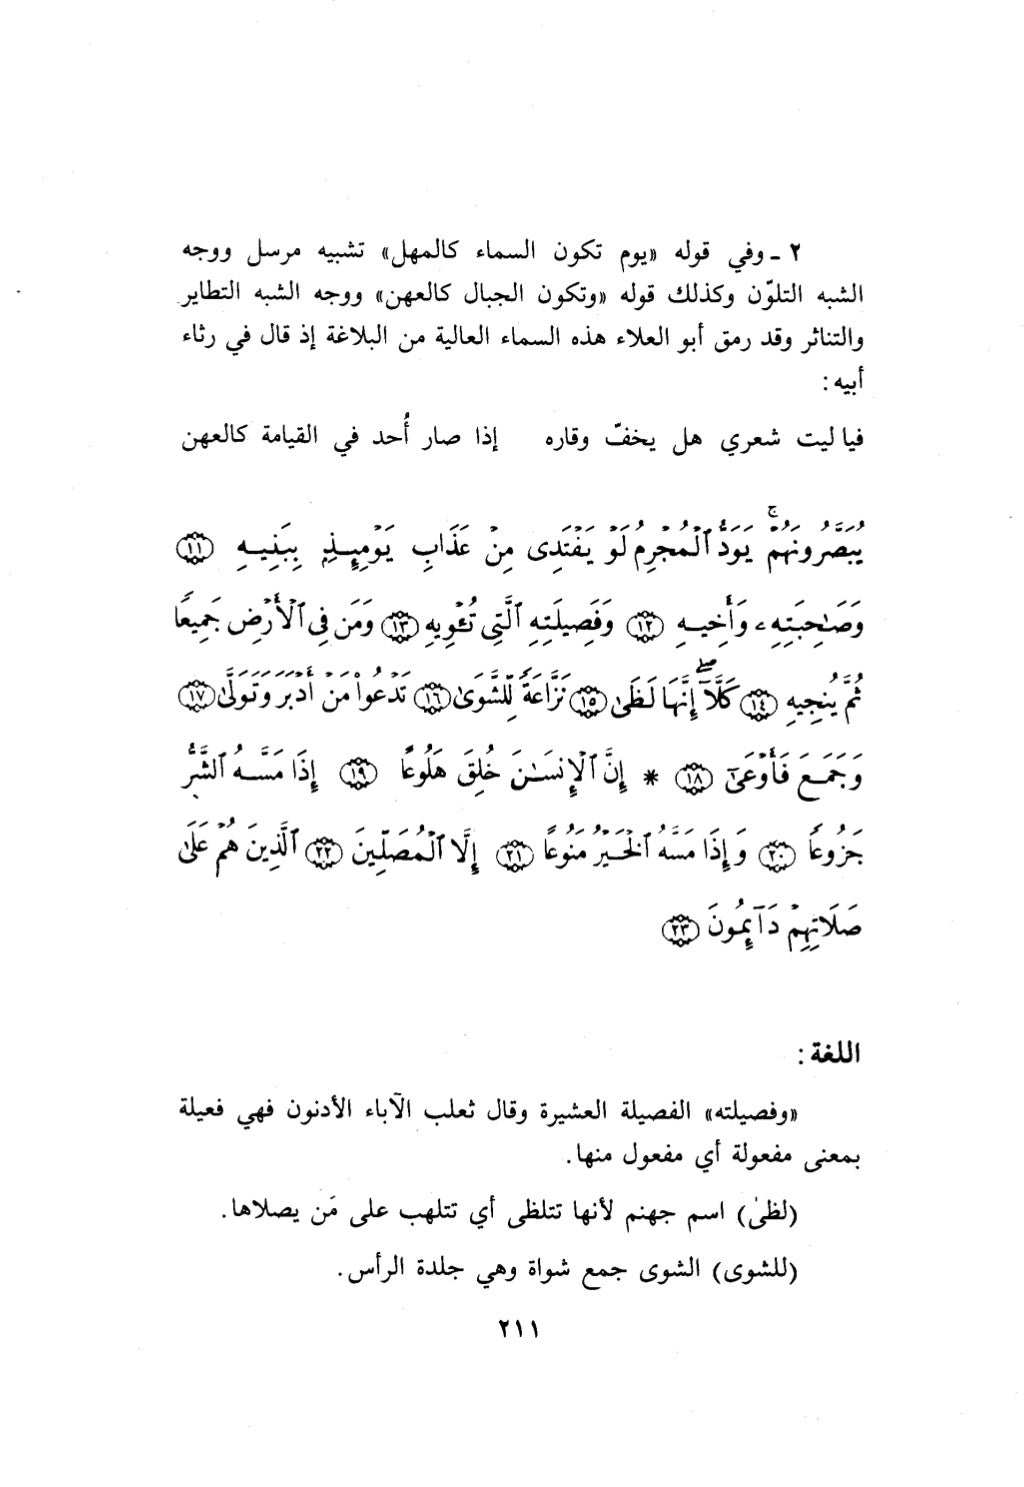 ٢ - وفي قوله «يوم تكون السماء كالمهل» تشبيه مرسل ووجه
الشبه التلوّن وكذلك قوله «وتكون الجبال كالعهن» ووجه الشبه التطاير
والتناثر وقد رمق أبو العلاء هذه السماء العالية من البلاغة إذ قال في رثاء
أبيه :
فيا ليت شعري هل يخفّ وقاره إذا صار أُحد في القيامة كالعهن
يُبَصَّرُونَهُمْۚ يَوَدُّ ٱلْمُجْرِمُ لَوْ يَفْتَدِى مِنْ عَذَابِ يَوْمِئِذٍۭ بِبَنِيهِ ﴿١١﴾
وَصَـٰحِبَتِهِۦ وَأَخِيهِ ﴿١٢﴾ وَفَصِيلَتِهِ ٱلَّتِى تُـْٔوِيهِ ﴿١٣﴾ وَمَن فِى ٱلْأَرْضِ جَمِيعًا
ثُمَّ يُنجِيهِ ﴿١٤﴾ كَلَّآۖ إِنَّهَا لَظَىٰ ﴿١٥﴾ نَزَّاعَةً لِّلشَّوَىٰ ﴿١٦﴾ تَدْعُوا۟ مَنْ أَدْبَرَ وَتَوَلَّىٰ ﴿١٧﴾
وَجَمَعَ فَأَوْعَىٰٓ ﴿١٨﴾ * إِنَّ ٱلْإِنسَـٰنَ خُلِقَ هَلُوعًا ﴿١٩﴾ إِذَا مَسَّهُ ٱلشَّرُّ
جَزُوعًا ﴿٢٠﴾ وَإِذَا مَسَّهُ ٱلْخَيْرُ مَنُوعًا ﴿٢١﴾ إِلَّا ٱلْمُصَلِّينَ ﴿٢٢﴾ ٱلَّذِينَ هُمْ عَلَىٰ
صَلَاتِهِمْ دَآئِمُونَ ﴿٢٣﴾
اللغة :
«وفصيلته» الفصيلة العشيرة وقال ثعلب الآباء الأدنون فهي فعيلة
بمعنى مفعولة أي مفعول منها.
(لظىٰ) اسم جهنم لأنها تتلظى أي تتلهب على مَن يصلاها.
(للشوى) الشوى جمع شواة وهي جلدة الرأس.
٢١١